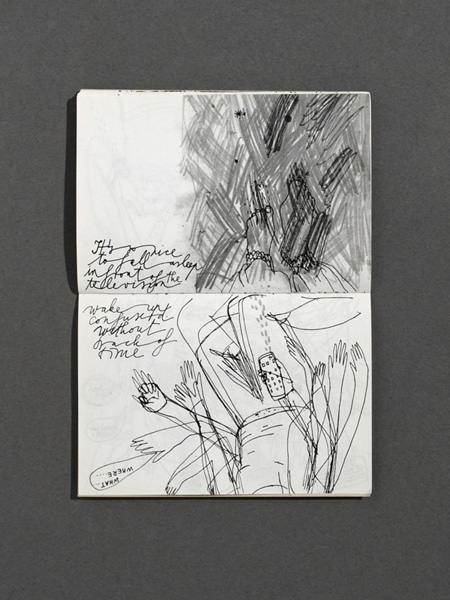 It's so nice
to fall asleep
in front of the
tellevision
wake up
confused
without
track of
time
WHAT..
WHERE....